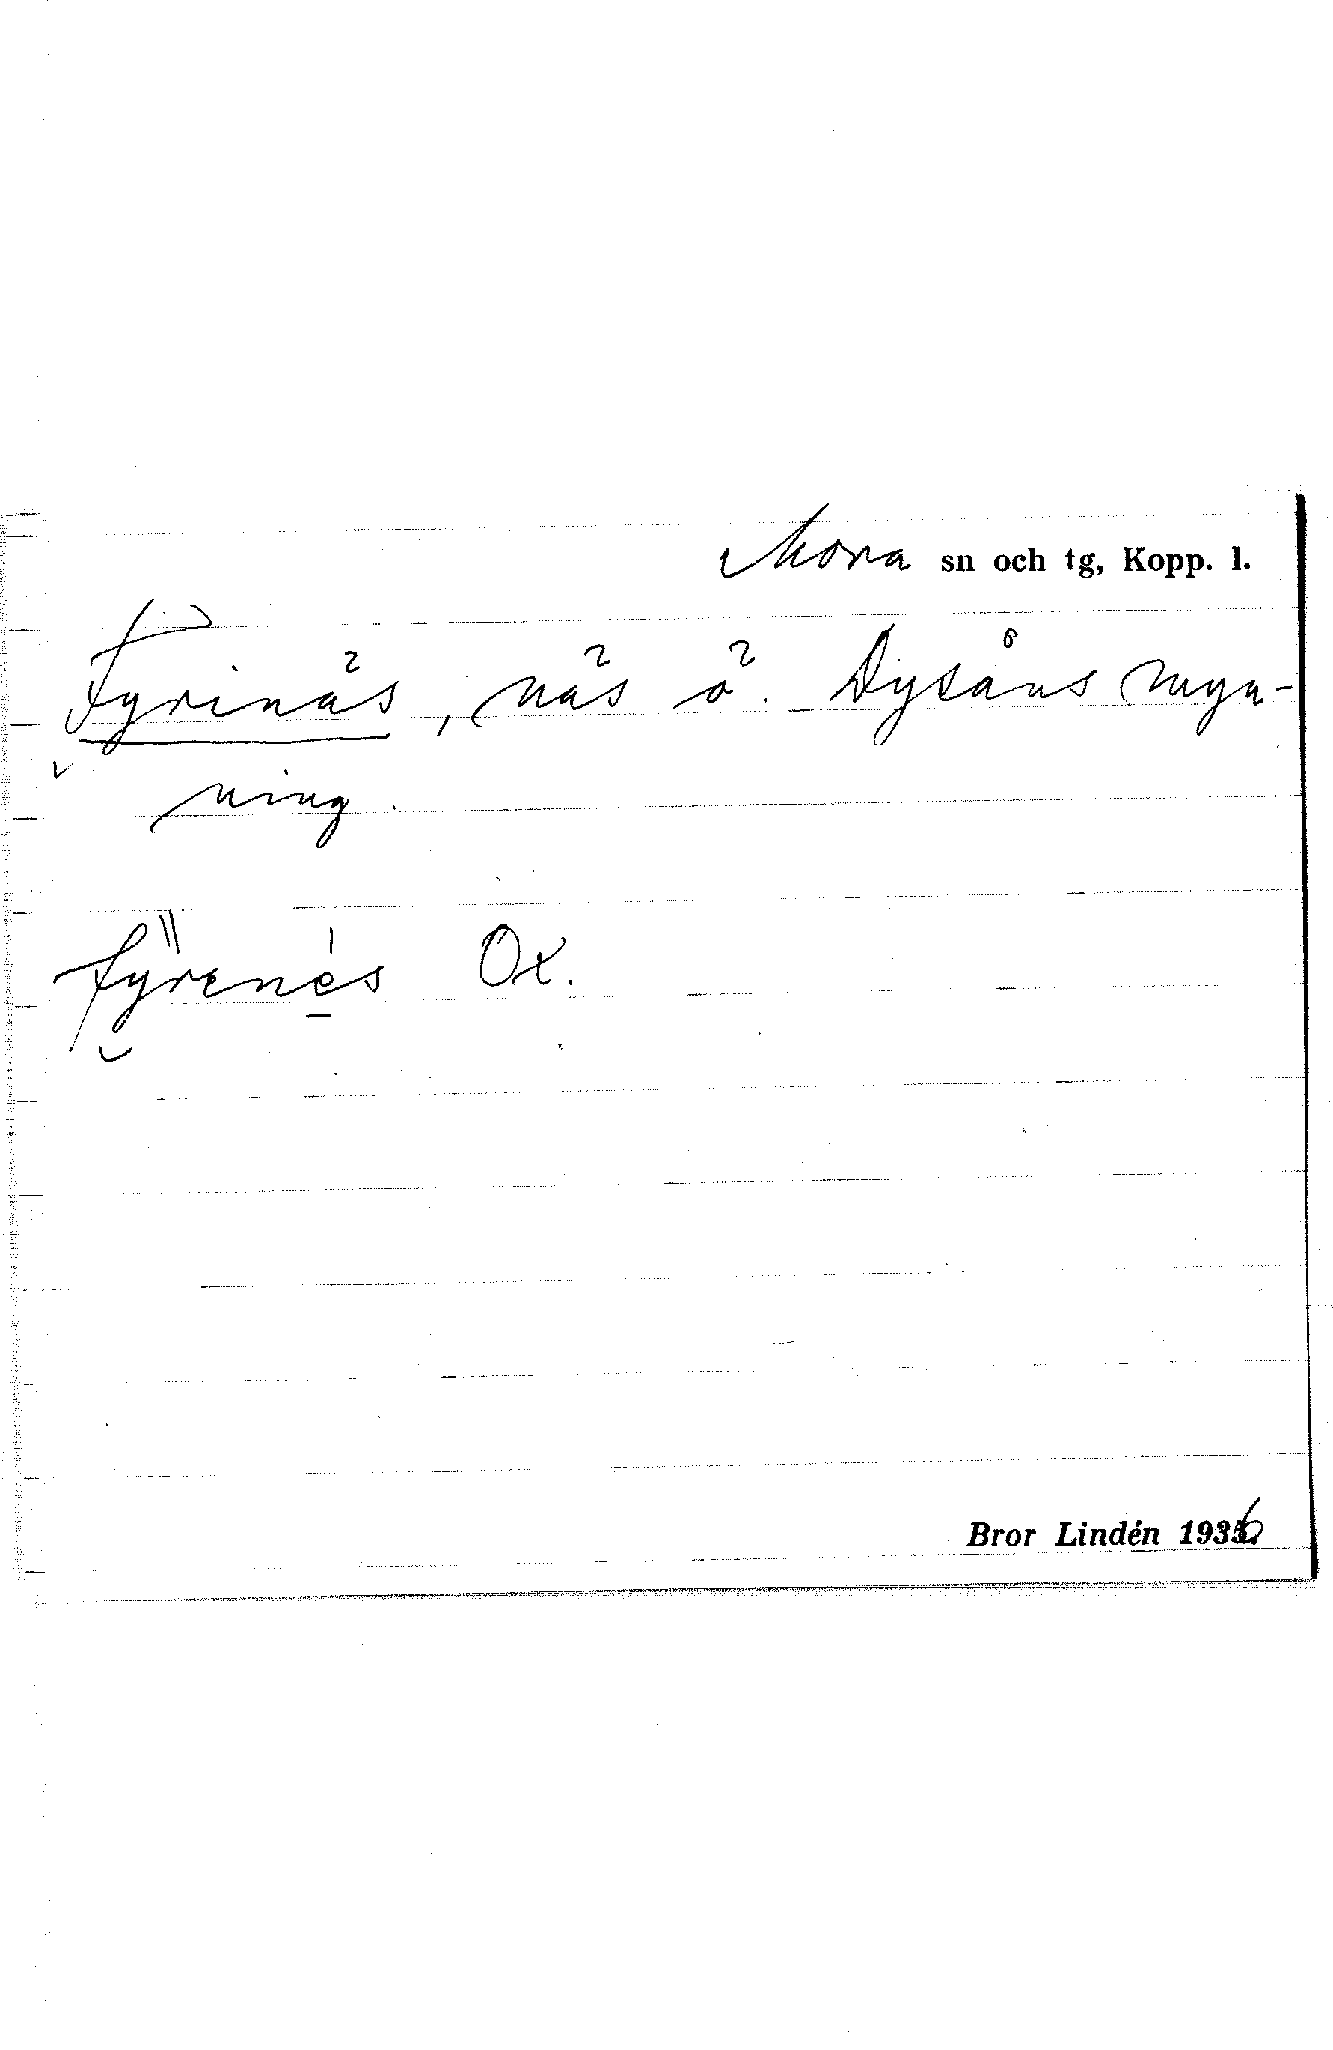 Mora sn och tg, Kopp. l.
Fyrinäs, näs ö. Dysåns myn-
ning.
fÿrenés Ox.
Bror Lindén 1936